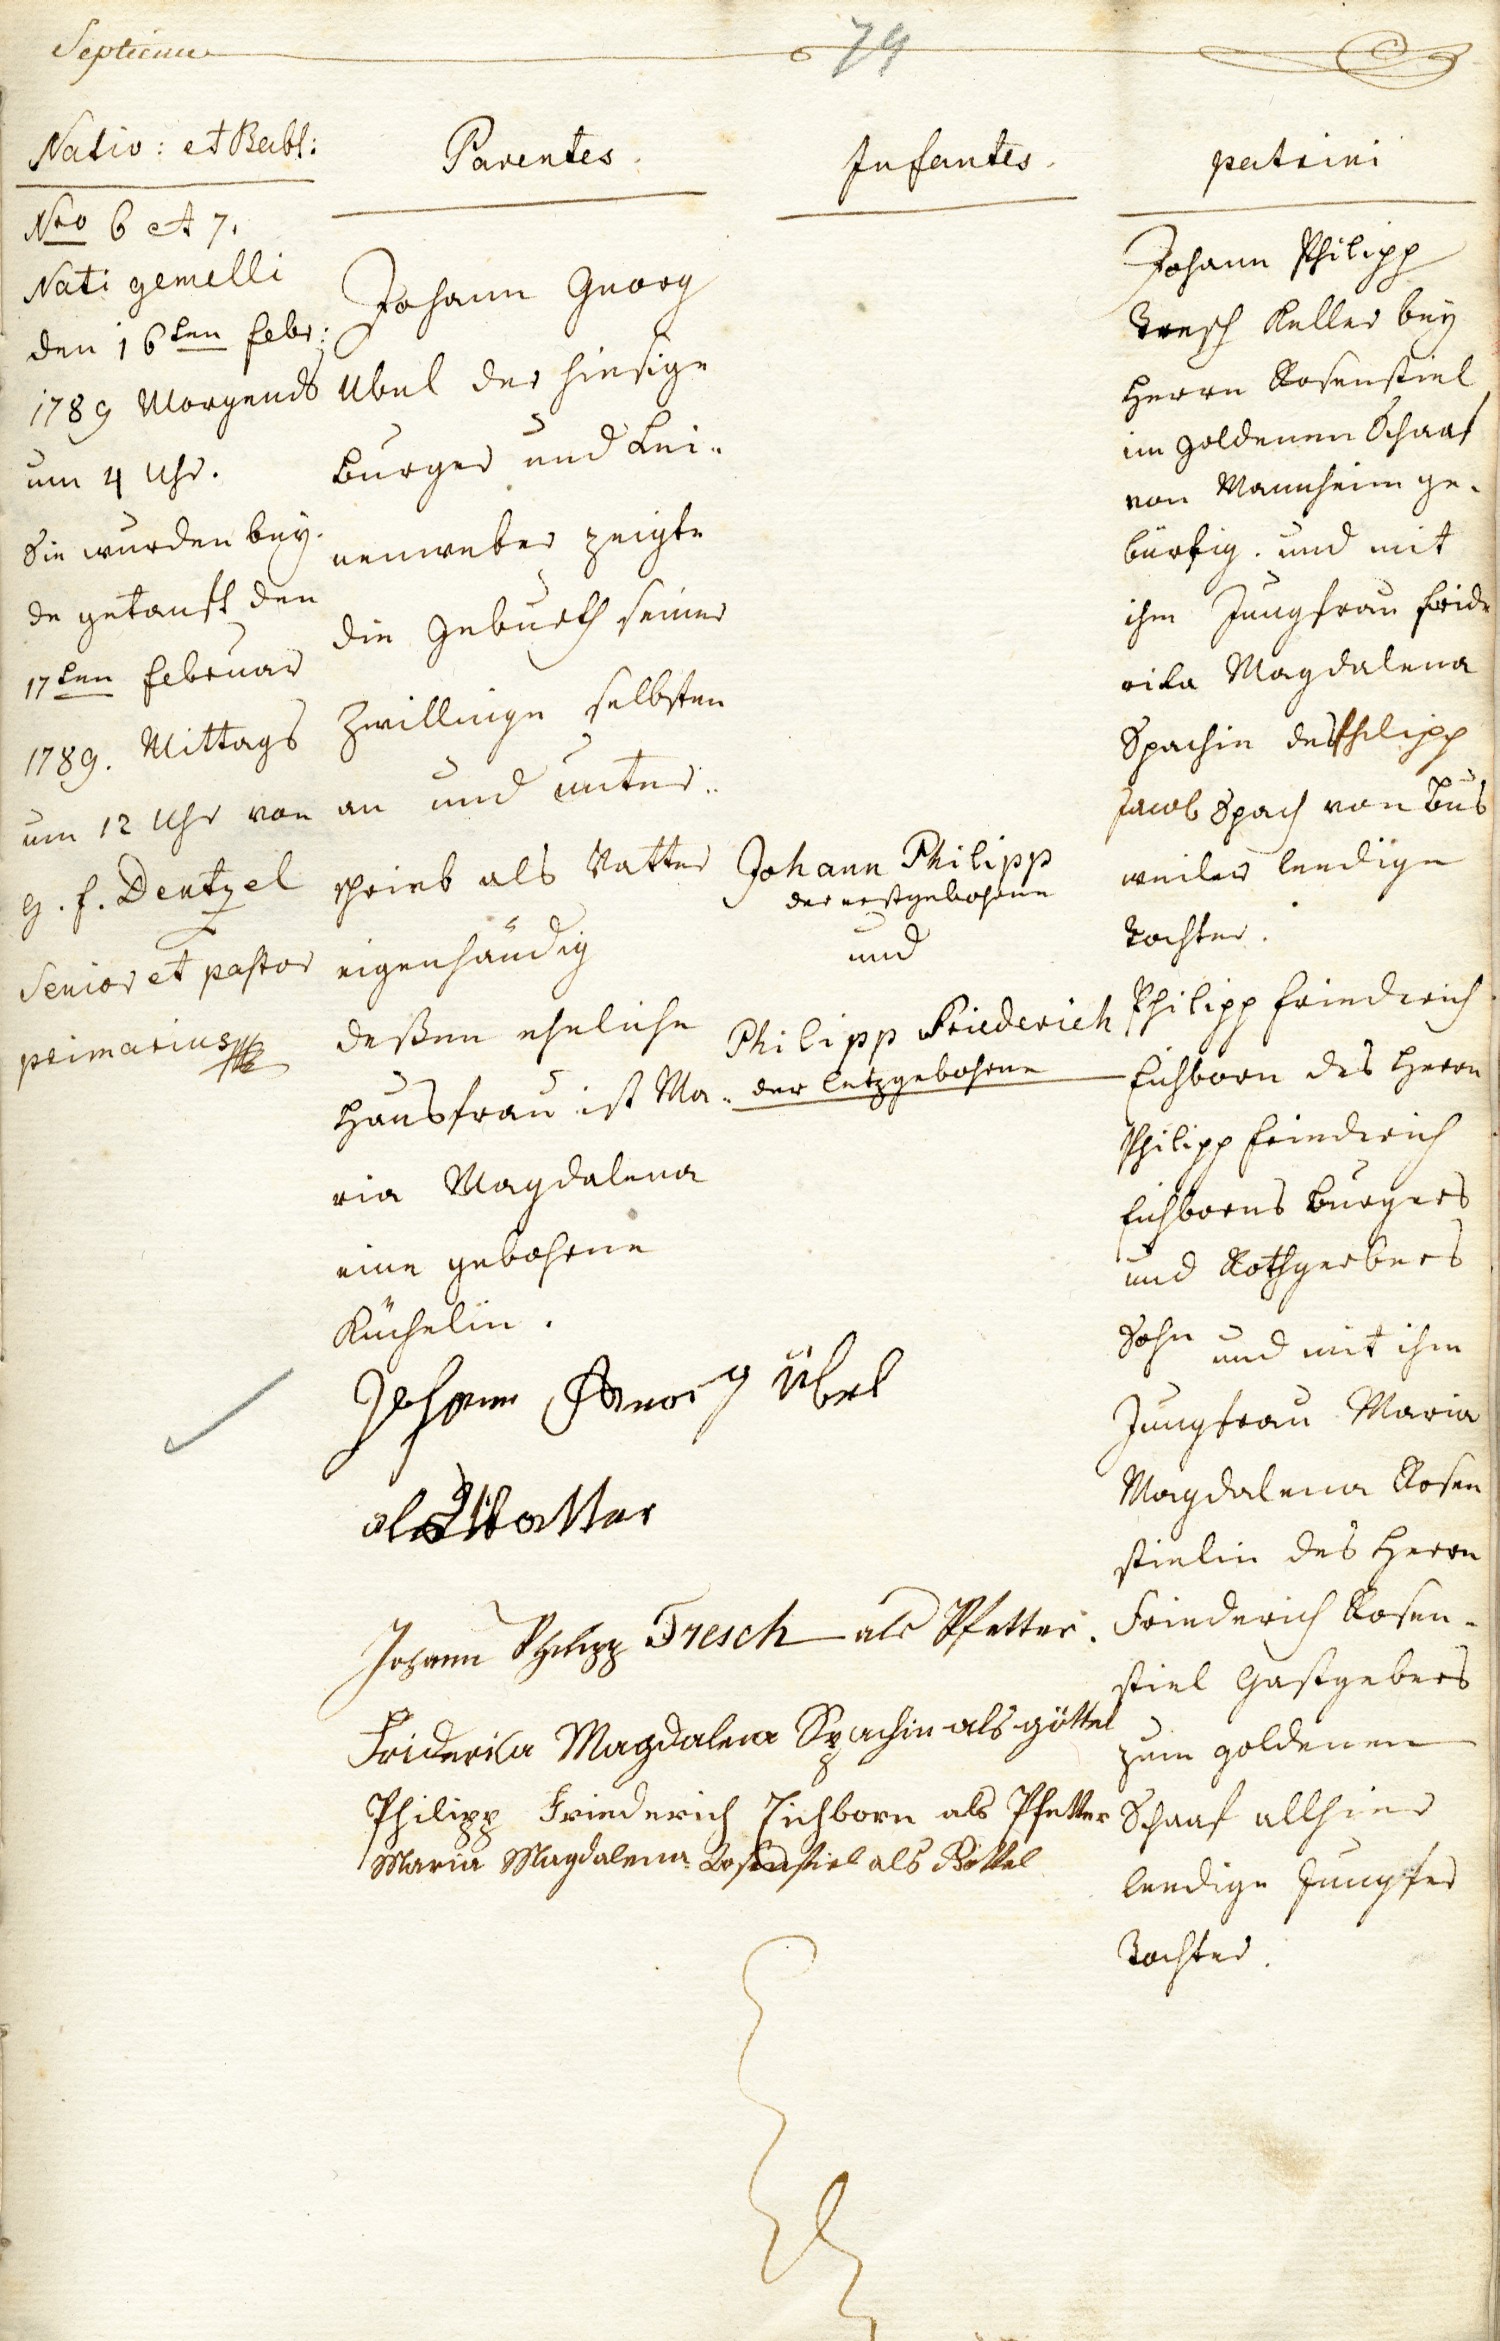 Septimus
79
Nativ: et Babt:
Nro 6 et 7.
Nati gemelli
den 16ten Febr:
1789 Morgends
um 4 Uhr.
Sie wurden bey-
de getauft den
17ten Februar
1789. Mittags
um 12 Uhr von
G. F. Dentzel
Senior et pastor
primarius
Parentes.
Johann Georg
Ubel der hiesige
Burger und Lei-
nenweber zeigte
die Geburth seiner
Zwillinge selbsten
an und unter-
schrieb als Vatter
eigenhändig
deßen eheliche
Hausfrau ist Ma-
ria Magdalena
eine gebohrne
Küchelin.
Johann Georg Übel
als Vatter
Johann Philipp Tresch als Pfetter.
Friderika Magdalena Spachin als göttel
Philipp Friederich Eichborn als Pfetter
Maria Magdalena Rosenstiel als Göttel
Infantes.
Johann Philipp
der erstgebohrne
und
Philipp Friederich
der letzgebohrne
patrini
Johann Philipp
Tresch Keller bey
Herrn Rosenstiel
im goldenen Schaaf
von Mannheim ge-
bürtig. und mit
ihm Jungfrau Fride
rika Magdalena
Spachin des Philipp
Jacob Spach von Bus
weiler leedige
Tochter.
Philipp Friedrich
Eichborn des Herrn
Philipp Friedrich
Eichborns Burgers
und Rothgerbers
Sohn und mit ihm
Jungfrau Maria
Magdalena Rosen
stielin des Herrn
Friederich Rosen-
stiel Gastgebers
zum goldenen
Schaaf allhier
leedige Jungfer
Tochter.